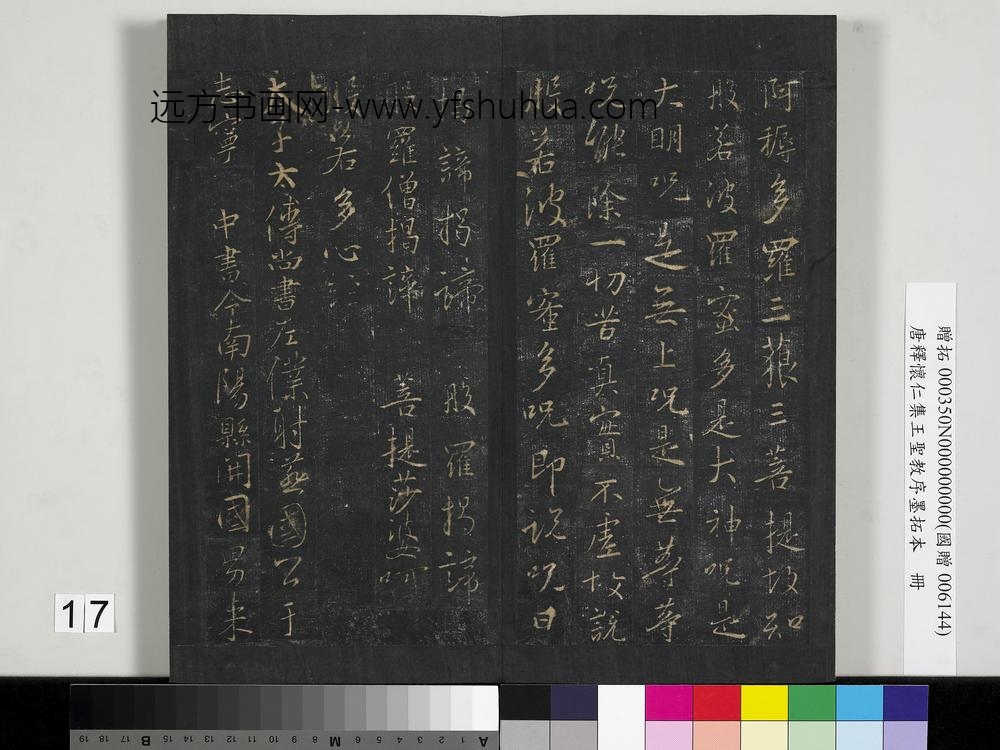 远方书画网-www.yfshuhua.com
阿耨多羅三藐三菩提故知
般若波羅蜜多是大神呪是
大明呪是無上呪是無等等
呪能除一切苦真實不虛故說
般若波羅蜜多呪即說呪曰
揭諦揭諦 般羅揭諦
般羅僧揭諦 菩提莎婆呵
般若多心經
太子太傅尚書左僕射燕國公于
志寧 中書令南陽縣開國男來
贈拓 000350N000000000(國贈 006144)
唐釋懷仁集王聖教序墨拓本 冊
17
A 1 2 3 4 5 6 M 8 9 10 11 12 13 14 15 B 17 18 19